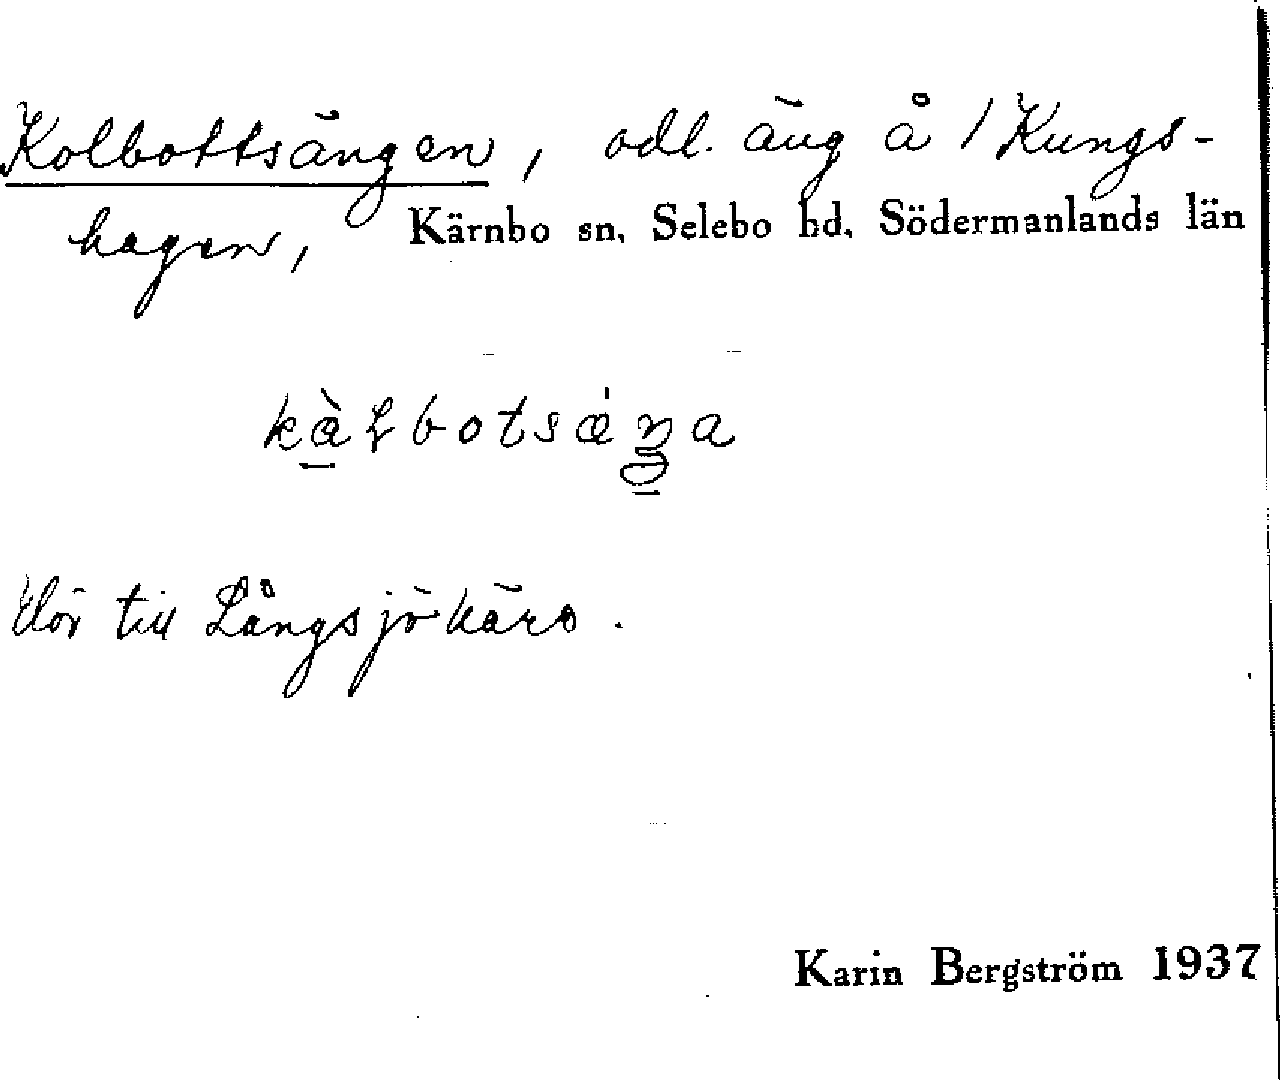 Kolbottsängen, odl. äng å / Kungs-
hagen, Kärnbo sn, Selebo hd, Södermanlands län
Hör till Långsjökärs.
Karin Bergström 1937